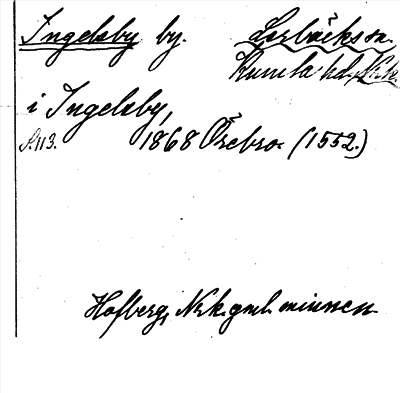 Ingelsby by. Lerbäcks sn.
Kumla hd, Nrk.
i Ingelsby,
S. 113. 1868 Örebro (1552.)
Hofberg, Nrk. gml. minnen